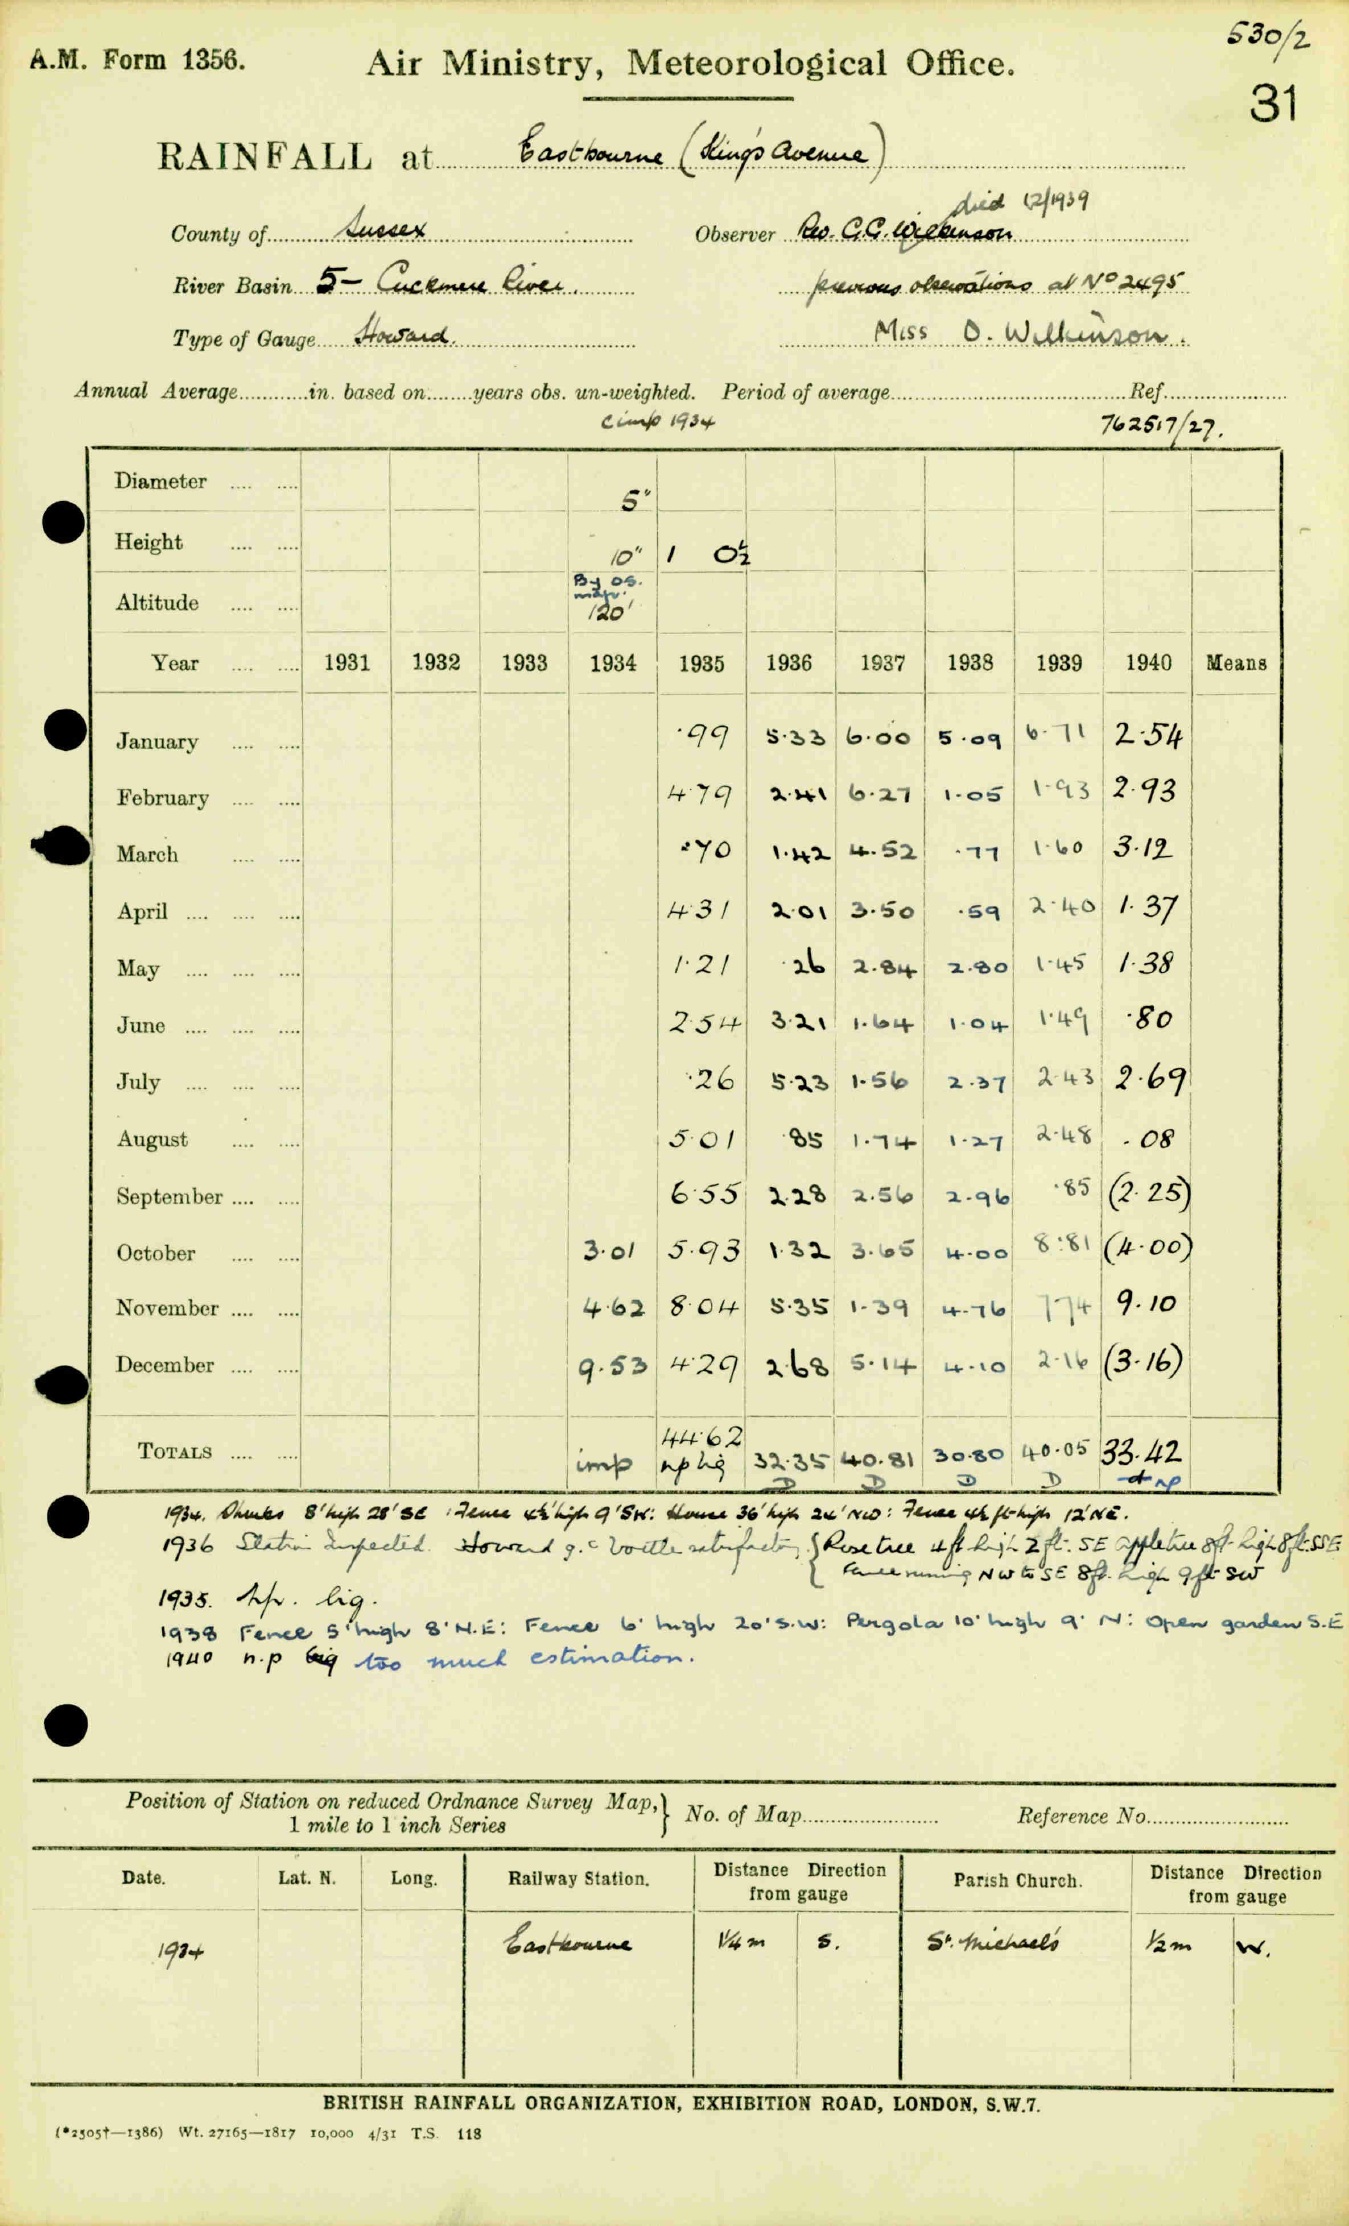 530/2
A.M. Form 1356. Air Ministry, Meteorological Office.
31
RAINFALL at Eastbourne (King's Avenue)
died 12/1939
County of Sussex Observer Rev. C.C. Wilkinson
River Basin 5— Cuckmere River. previous observations at No 2495
Type of Gauge Howard. Miss O. Wilkinson.
Annual Average in. based on years obs. un-weighted. Period of average Ref.
1934 762517/27.
Diameter 5"
Height 10" 1 0½
Altitude By OS. map. 120'
Year 1931 1932 1933 1934 1935 1936 1937 1938 1939 1940 Means
January ·99 5·33 6·00 5·09 6·71 2·54
February 4·79 2·41 6·27 1·05 1·93 2·93
March ·70 1·42 4·52 ·77 1·60 3·12
April 4·31 2·01 3·50 ·59 2·40 1·37
May 1·21 ·26 2·84 2·80 1·45 1·38
June 2·54 3·21 1·64 1·04 1·49 ·80
July ·26 5·23 1·56 2·37 2·43 2·69
August 5·01 ·85 1·74 1·27 2·48 ·08
September 6·55 2·28 2·56 2·96 ·85 (2·25)
October 3·01 5·93 1·32 3·65 4·00 8·81 (4·00)
November 4·62 8·04 5·35 1·39 4·76 7·74 9·10
December 9·53 4·29 2·68 5·14 4·10 2·16 (3·16)
44·62
TOTALS imp np big 32·35 40·81 30·80 40·05 33·42
D D D D np
1934. Shrubs 8' high 28' SE : Fence 4½' high 9' SW: House 36' high 24' NW: Fence 4½ ft high 12' NE.
1936 Station Inspected. Howard g. c bottle satisfactory. { Rose tree 4 ft high 2 ft. SE apple tree 8 ft high 8 ft SSE
Fence running NW to SE 8 ft. high 9 ft SW
1935. np. big.
1938 Fence 5' high 8' N.E: Fence 6' high 20' S.W: Pergola 10' high 9' N: Open garden S.E
1940 n.p big too much estimation.
Position of Station on reduced Ordnance Survey Map, 1 mile to 1 inch Series } No. of Map Reference No.
Date. Lat. N. Long. Railway Station. Distance Direction from gauge Parish Church. Distance Direction from gauge
1934 Eastbourne 1¼ m S. St. Michael's ½ m W.
BRITISH RAINFALL ORGANIZATION, EXHIBITION ROAD, LONDON, S.W.7.
(*2505†—1386) Wt. 27165—1817 10,000 4/31 T.S. 118